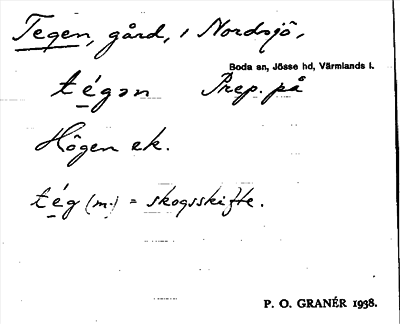 Tegen, gård, i Nordsjö,
Boda sn, Jösse hd, Värmlands l.
tégən Prep. på
Högen ek.
tég (m.) = skogsskifte.
P. O. GRANÉR 1938.